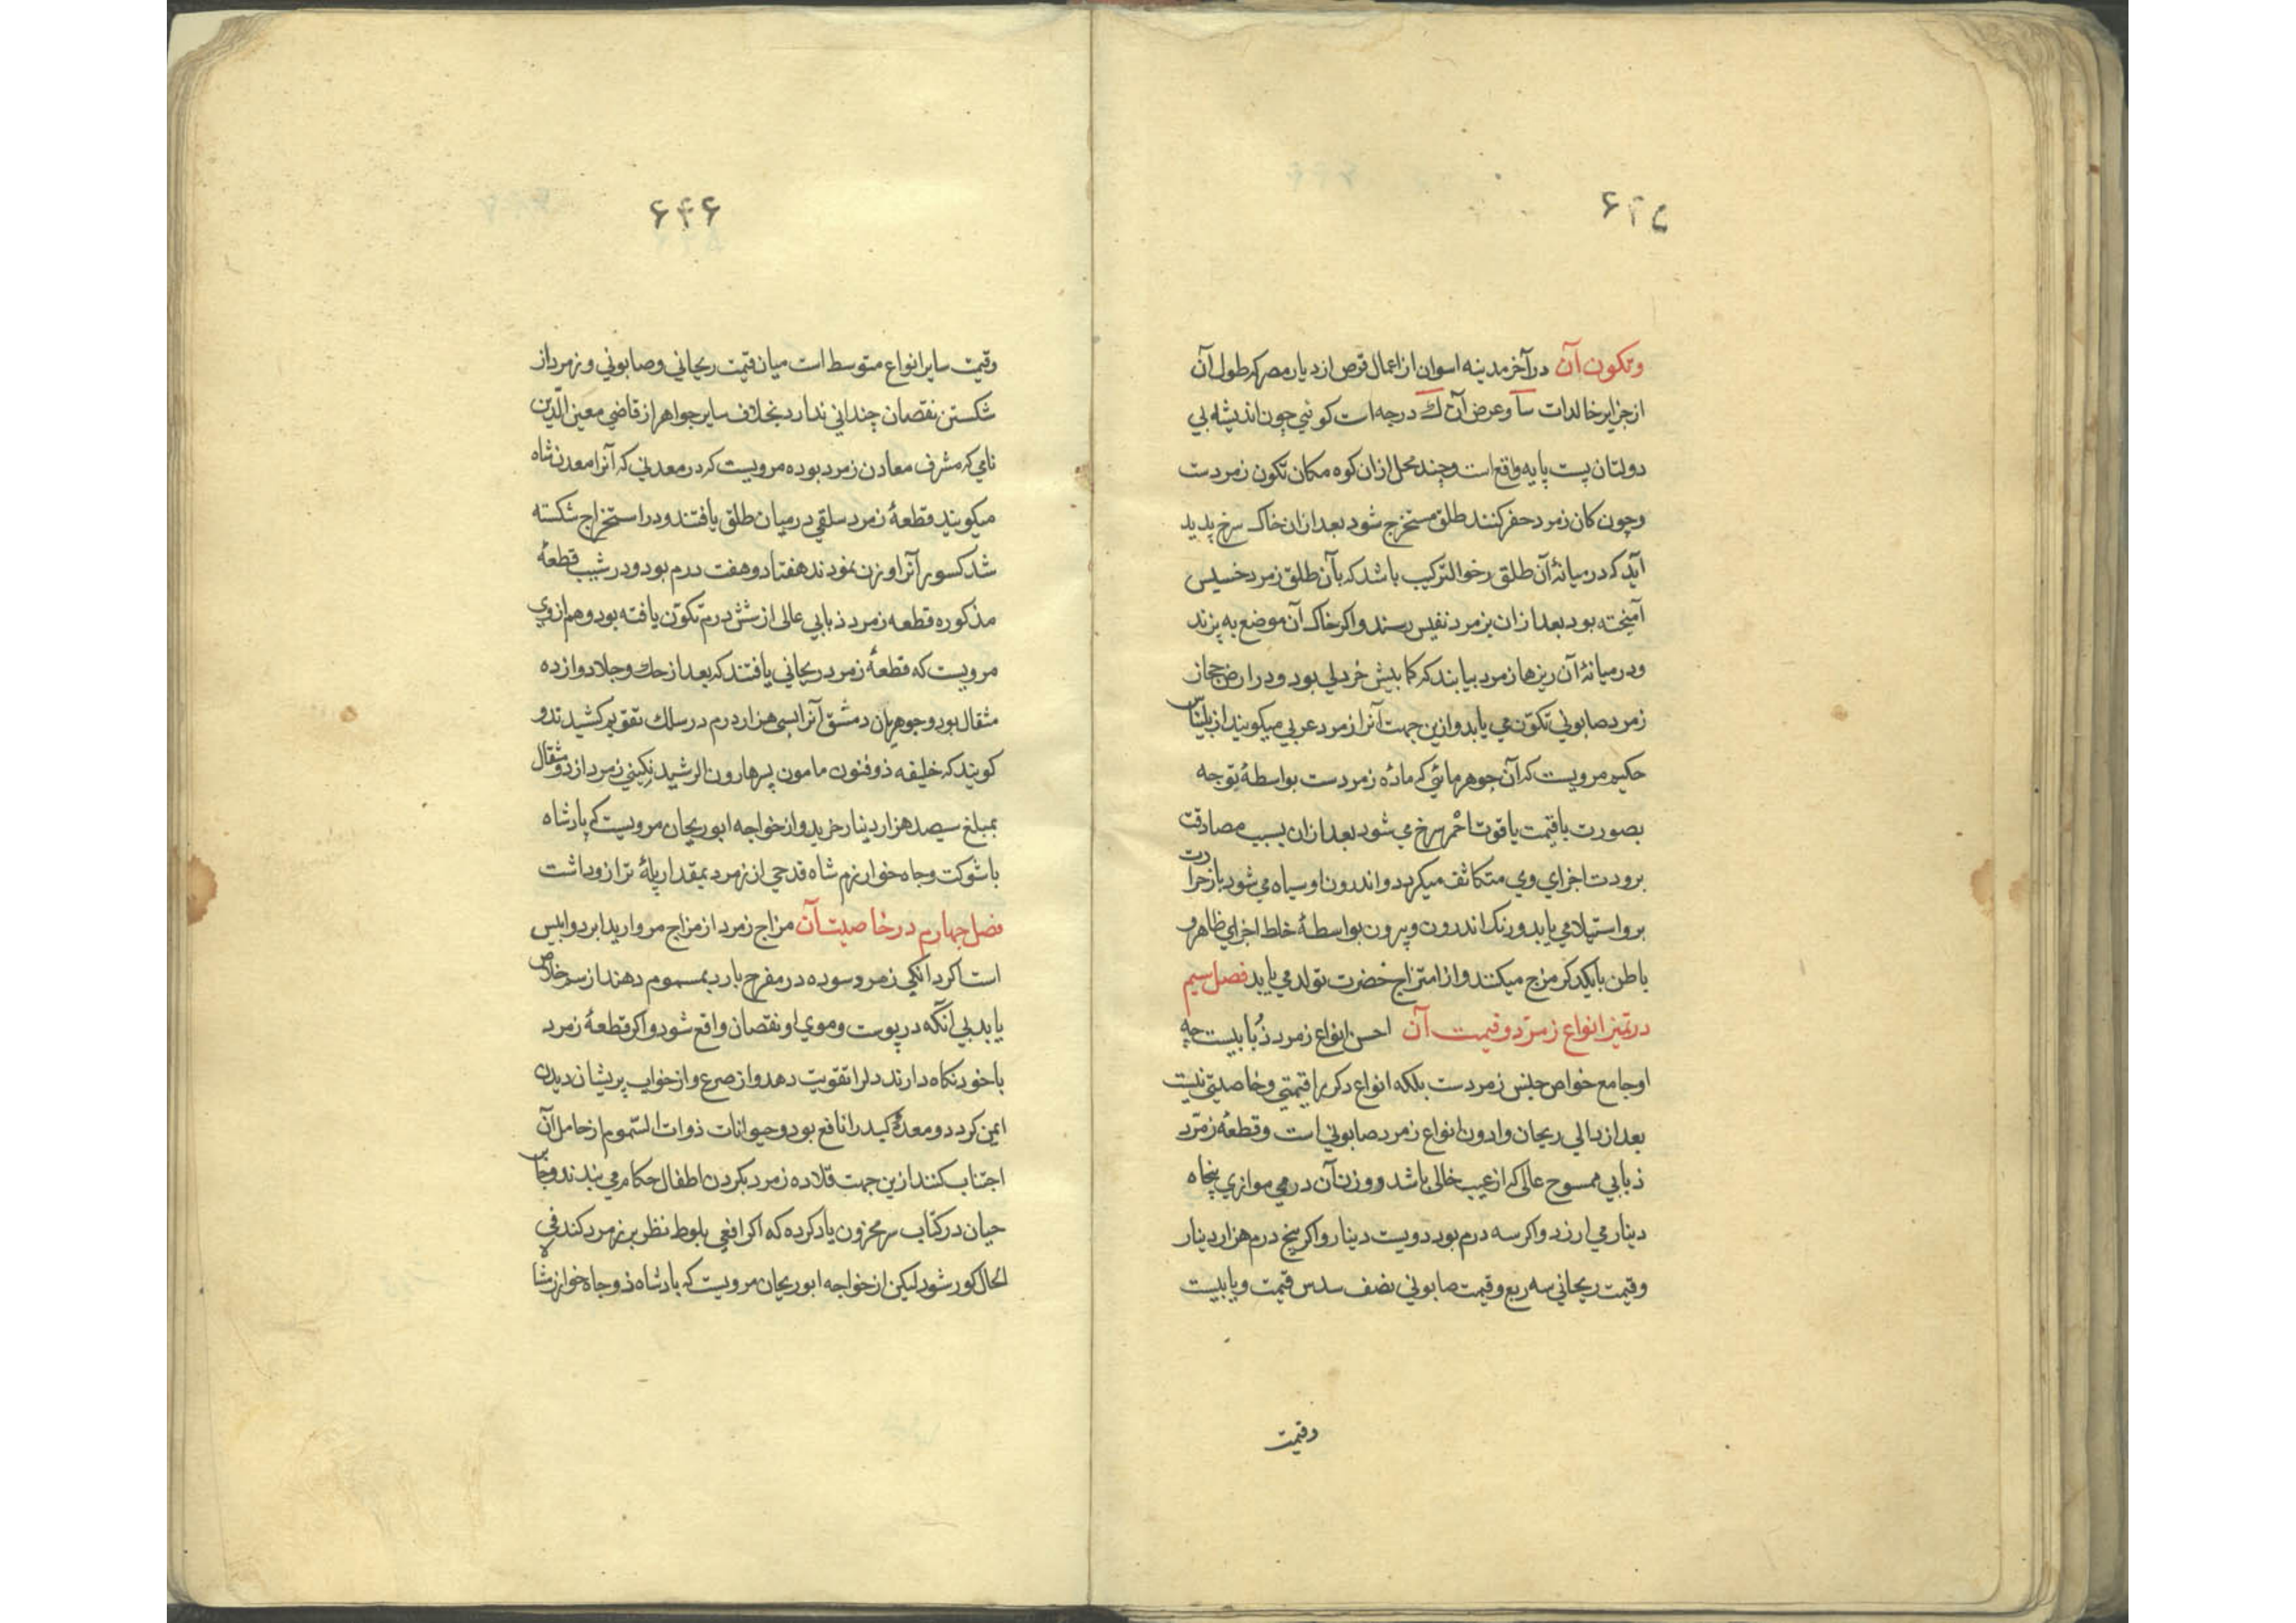 ۶۴۵
وتکون آن در آخر مدینه اسوان از اعمال قوص از دیار مصر که طول آن
از جزایر خالدات سا و عرض آن ک درجه است کوئی چون اندیشه بی
دولتان پست پایه واقع است و چند محل ازان کوه مکان تکون زمردست
و چون کان زمرد حفر کنند طلق مستخرج شود بعد ازان خاک سرخ پدید
آید که در میانهٔ آن طلق رخو الترکیب باشد که بآن طلق زمرد خسیس
آمیخته بود بعد ازان بزمرد نفیس رسند و اکر خاک آن موضع به پزند
و در میانهٔ آن ریزها زمرد بیابند که کمابیش خردلی بود و در ارض حجاز
زمرد صابونی تکوّن می یابد و ازین جهت آنرا زمرد عربی میکویند از بلیناس
حکیم مرویست که آن جوهر مائی که مادهٔ زمردست بواسطهٔ توجه
بصورت باقیمت یاقوت احمر سرخ می شود بعد ازان بسبب مصادقت
برودت اجزای وی متکاثف میکردد و اندرون او سیاه می شود باز حرارت
برو استیلا می یابد و رنک اندرون و بیرون بواسطهٔ خلط اجزای ظاهر و
باطن بایکدکر مزج میکنند و از امتزاج خضرت تولد می یابد فصل سیم
در تمیز انواع زمرّد و قیمت آن احسن انواع زمرد ذُبابیست چه
او جامع خواص جنس زمردست بلکه انواع دکر را قیمتی و خاصیتی نیست
بعد از ذبابی ریحان و ادون انواع زمرد صابونی است و قطعهٔ زمرّد
ذبابی ممسوح عالی که از عیب خالی باشد و وزن آن درمی موازی پنجاه
دینار می ارزد و اکر سه درم بود دویست دینار و اکر پنج درم هزار دینار
و قیمت ریحانی سه ربع و قیمت صابونی نصف سدس قیمت وبابیست
وقیمت
۶۴۶
وقیمت سایر انواع متوسط است میان قیمت ریحانی و صابونی و زمرد از
شکستن نقصان چندانی ندارد بخلاف سایر جواهر از قاضی معین الدّین
نامی که مشرف معادن زمرد بوده مرویست که در معدنی که آنرا معدن شاه
میکویند قطعهٔ زمرد سلقی در میان طلق یافتند و در استخراج شکسته
شد کسور آنرا وزن نمودند هفتاد و هفت درم بود و در شیب قطعهٔ
مذکوره قطعه زمرد ذبابی عالی از شش درم تکوّن یافته بود و هم از وی
مرویست که قطعهٔ زمرد ریحانی یافتند که بعد از حک و جلا دوازده
مثقال بود و جوهریان دمشق آنرا بسی هزار درم در سلک تقویم کشیدند و
کویند که خلیفه ذوفنون مامون پسر هارون الرشید نکینی زمرد از دو مثقال
بمبلغ سیصد هزار دینار خرید و از خواجه ابوریحان مرویست که پادشاه
باشوکت و جاه خوارزم شاه قدحی از زمرد بمقدار پلهٔ ترازو داشت
فصل چهارم در خاصیت آن مزاج زمرد از مزاج مروارید ابرد و ایبس
است اکر دانکی زمرد سوده در مفرح بارد بمسموم دهند از سم خلاص
یابد بی آنکه در پوست و موی او نقصان واقع شود و اکر قطعهٔ زمرد
باخود نکاه دارند دلرا تقویت دهد و از صرع و از خواب پریشان دیدن
ایمن کردد و معدهٔ و کبد را نافع بود و حیوانات ذوات السّموم از حامل آن
اجتناب کنند ازین جهت قلاده زمرد بکردن اطفال حکام می بندند و جابر
حیان در کتاب سر مخزون یاد کرده که اکر افعی بلوط نظر بر زمرد کند فی
الحال کور شود لیکن از خواجه ابوریحان مرویست که پادشاه ذوجاه خوارزمشاه